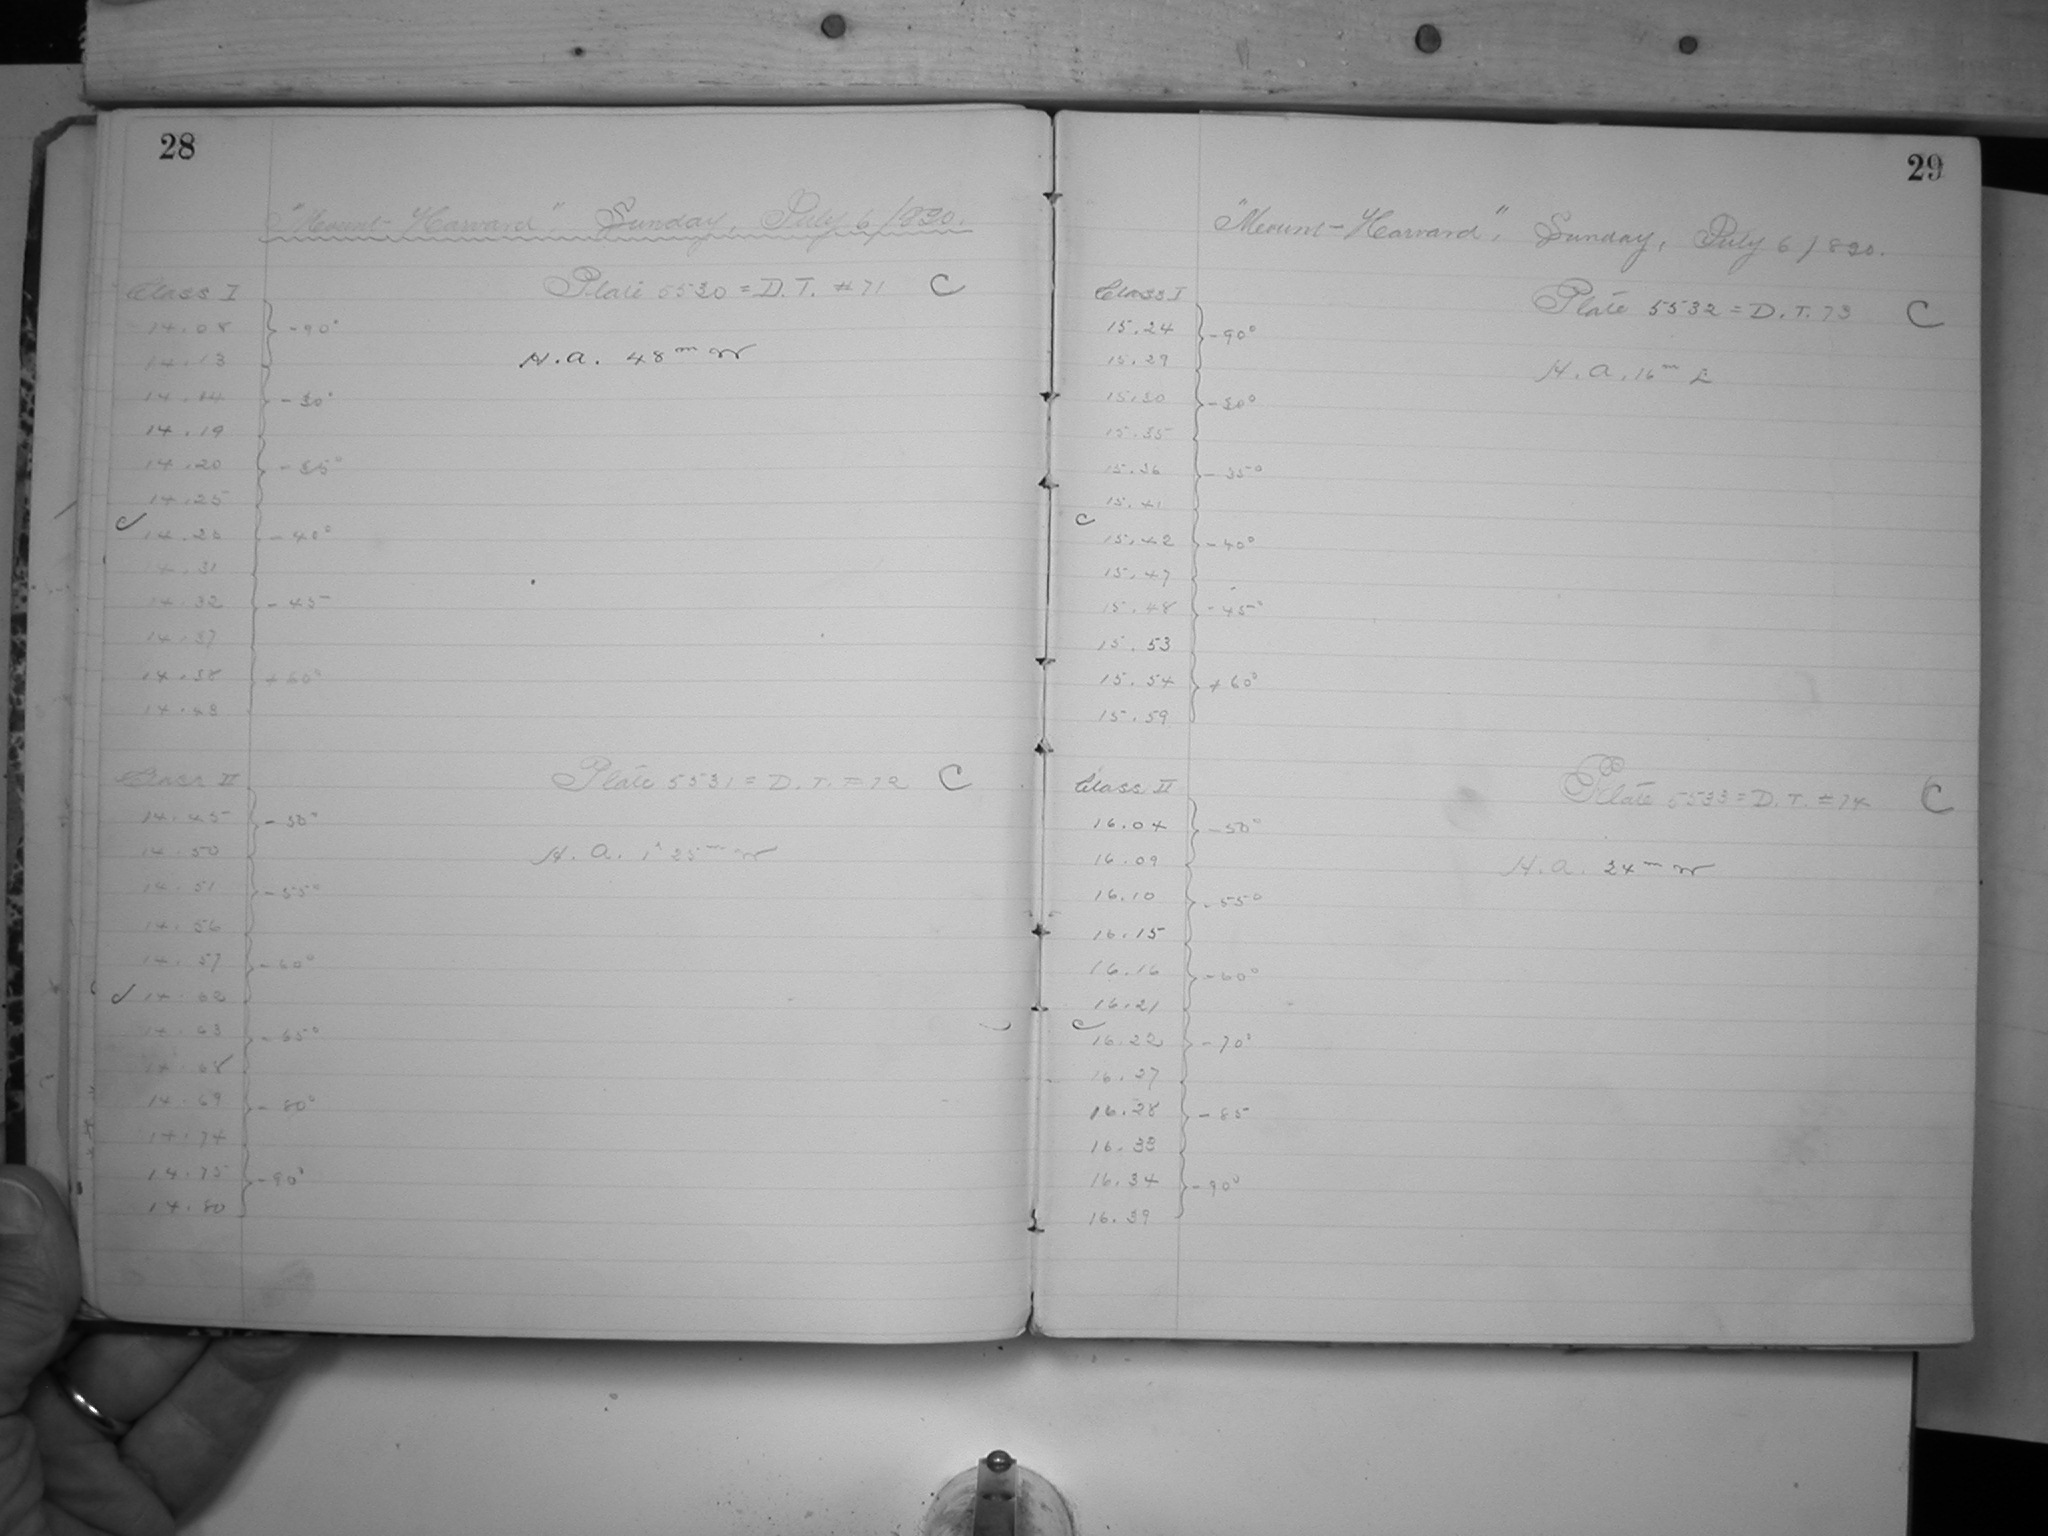 28
"Mount-Harvard", Sunday, July 6/890.
Class I Plate 5530 = D.T. #71 C
14.08 -90°
14.13 H.A. 48m W
14.14 -30°
14.19
14.20 -35°
14.25
14.26 -40°
14.31
14.32 -45
14.37
14.38 +60°
14.43
Class II Plate 5531 = D.T. #72 C
14.45 -50°
14.50 H.A. 1h 25m W
14.51 -55°
14.56
14.57 -60°
14.62
14.63 -65°
14.68
14.69 -80°
14.74
14.75 -90°
14.80
29
"Mount-Harvard", Sunday, July 6/890.
Class I Plate 5532 = D.T. 73 C
15.24 -90°
15.29 H.A. 16m E
15.30 -30°
15.35
15.36 -35°
15.41
15.42 -40°
15.47
15.48 -45°
15.53
15.54 +60°
15.59
Class II Plate 5533 = D.T. #74 C
16.04 -50°
16.09 H.A. 24m W
16.10 -55°
16.15
16.16 -60°
16.21
16.22 -70°
16.27
16.28 -85
16.33
16.34 -90°
16.39